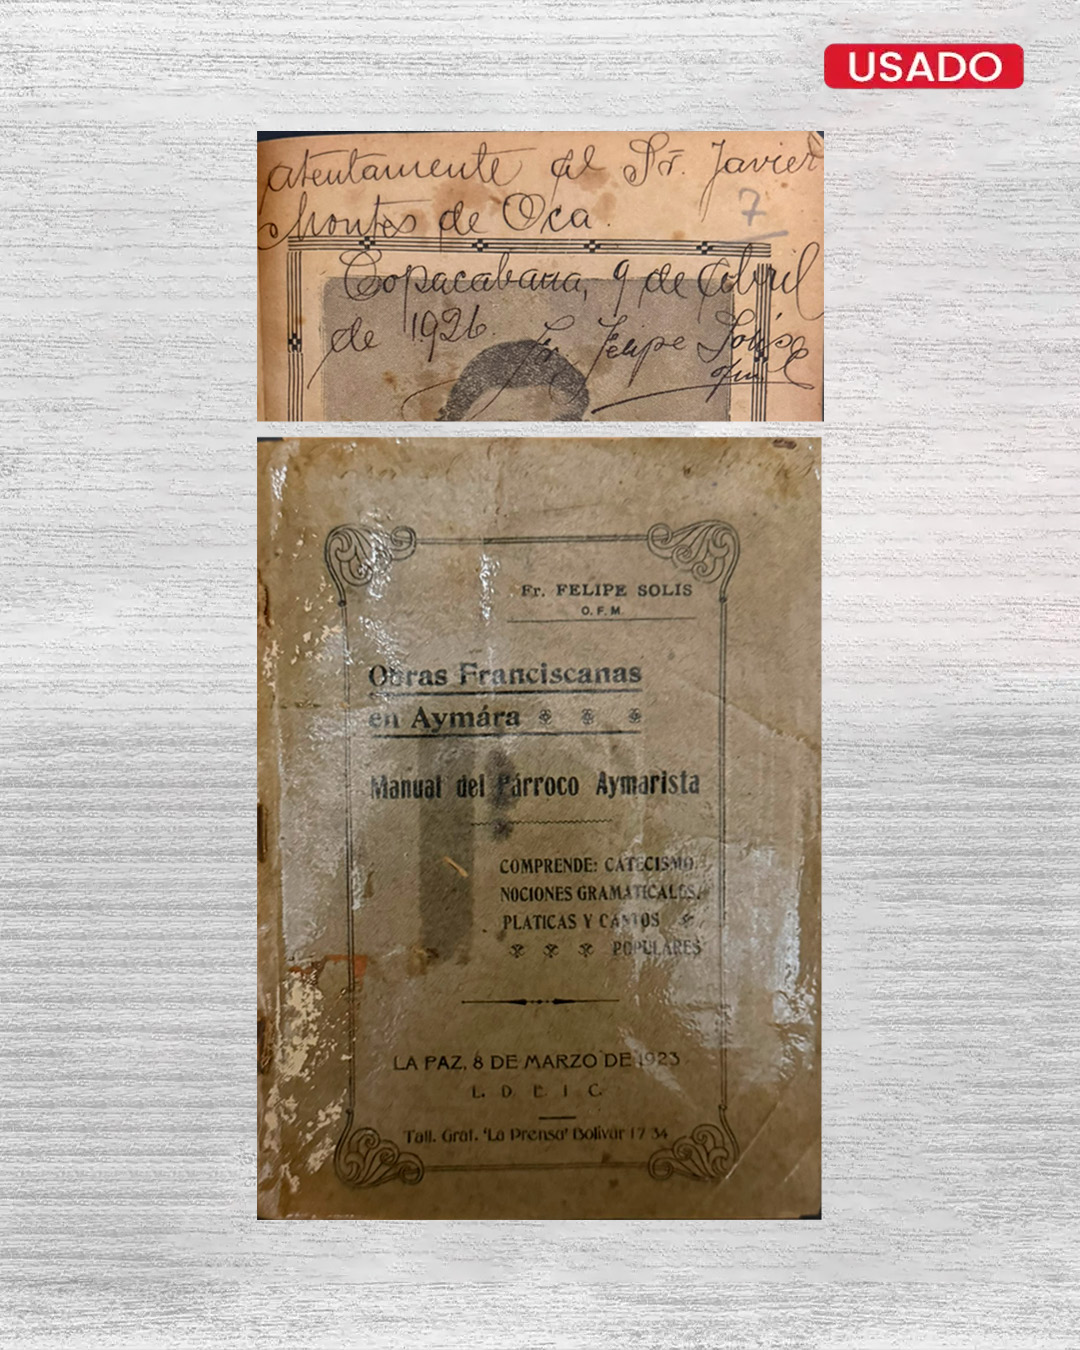 USADO
Atentamente al Sr. Javier
Montes de Oca.
7
Copacabana, 9 de Abril
de 1926.
Fr. Felipe Solis
Fr. FELIPE SOLIS
O. F. M.
Obras Franciscanas
en Aymára
Manual del Párroco Aymarista
COMPRENDE: CATECISMO,
NOCIONES GRAMATICALES,
PLATICAS Y CANTOS
POPULARES
LA PAZ, 8 DE MARZO DE 1923
L. D. E. I. C.
Tall. Graf. "La Prensa" Bolívar 17 34